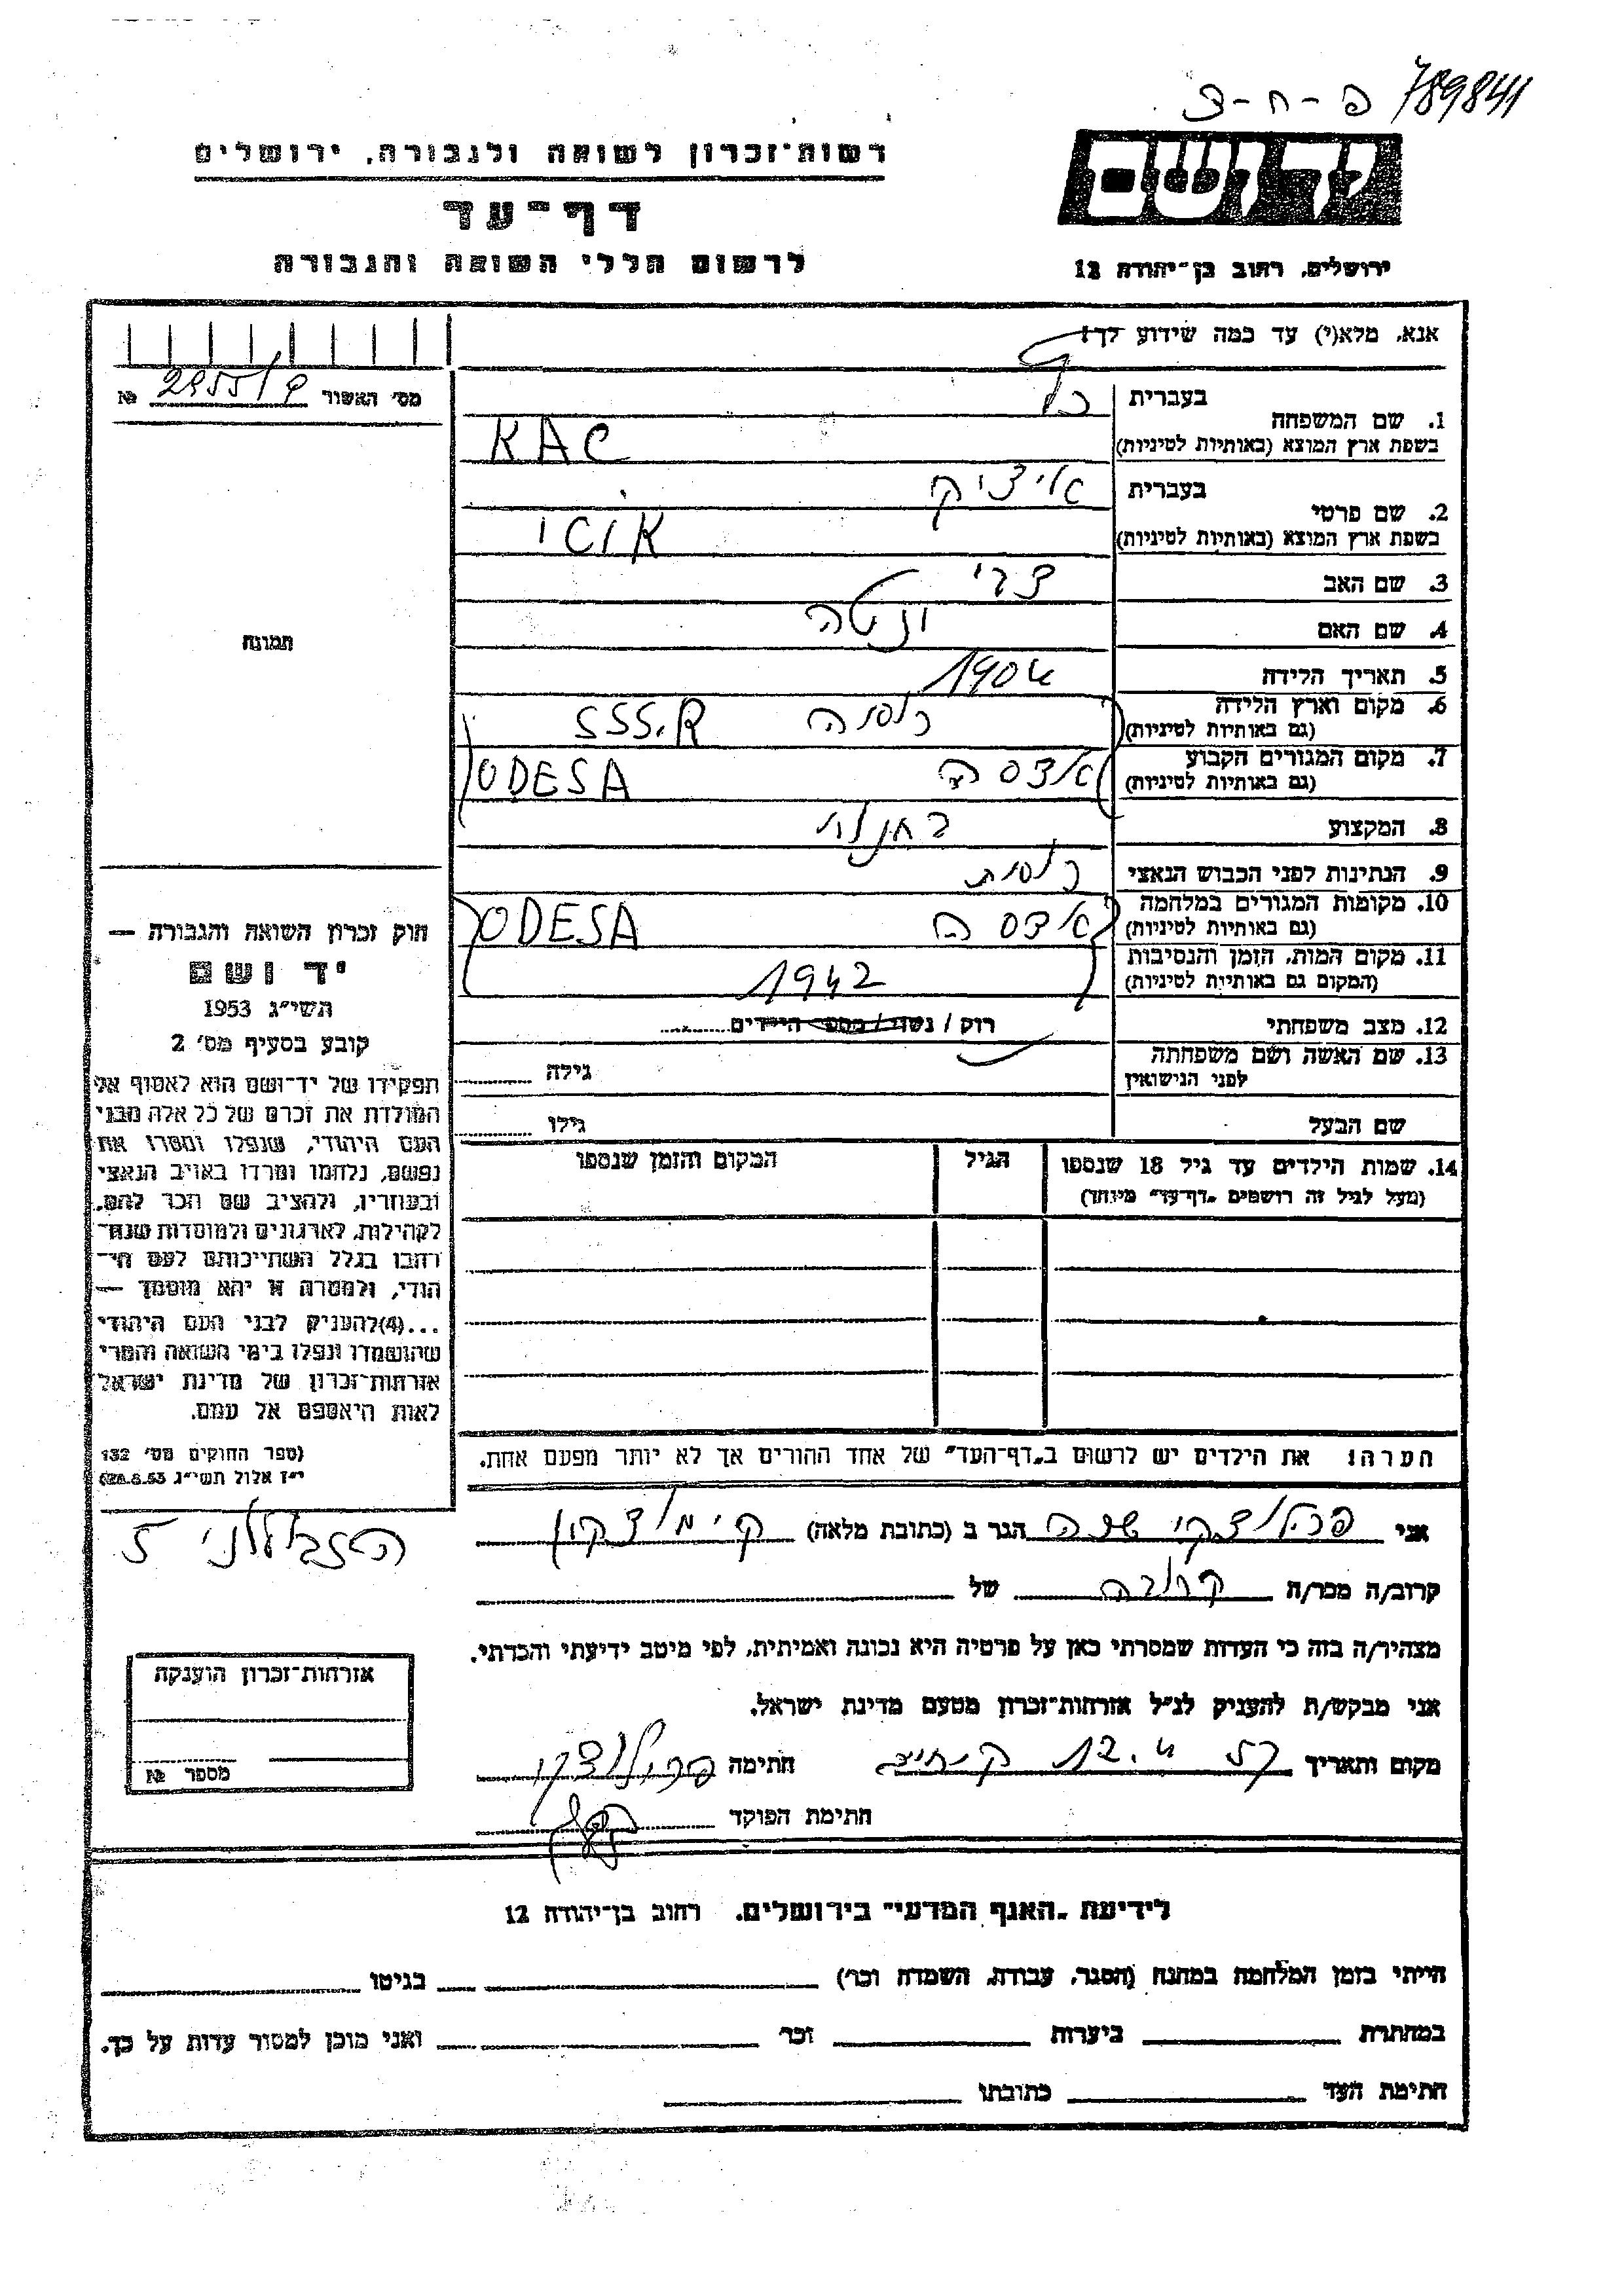 789841
פ-ח-צ
יד ושם
ירושלים, רחוב בן-יהודה 12
רשות-זכרון לשואה ולגבורה, ירושלים
דף-עד
לרשום חללי השואה והגבורה
אנא, מלא(י) עד כמה שידוע לך!
מס' האשור 2955/פ №
1. שם המשפחה
בעברית כץ
בשפת ארץ המוצא (באותיות לטיניות) KAC
2. שם פרטי
בעברית איציק
בשפת ארץ המוצא (באותיות לטיניות) ICIK
3. שם האב צבי
4. שם האם
5. תאריך הלידה 1904
6. מקום וארץ הלידה
(גם באותיות לטיניות) רוסיה SSS.R
7. מקום המגורים הקבוע
(גם באותיות לטיניות) אודסה ODESA
8. המקצוע
9. הנתינות לפני הכבוש הנאצי רוסית
10. מקומות המגורים במלחמה
(גם באותיות לטיניות) אודסה ODESA
11. מקום המות, הזמן והנסיבות
(המקום גם באותיות לטיניות) 1942
12. מצב משפחתי רוק / נשוי / מספר הילדים
13. שם האשה ושם משפחתה
לפני הנישואין
גילה
שם הבעל גילו
14. שמות הילדים עד גיל 18 שנספו
(מעל לגיל זה רושמים "דף-עד" מיוחד)
הגיל
המקום והזמן שנספו
תמונה
חוק זכרון השואה והגבורה —
יד ושם
תשי"ג 1953
קובע בסעיף מס' 2
תפקידו של יד-ושם הוא לאסוף אל
המולדת את זכרם של כל אלה מבני
העם היהודי, שנפלו ומסרו את
נפשם, נלחמו ומרדו באויב הנאצי
ובעוזריו, ולהציב שם וזכר להם,
לקהילות, לארגונים ולמוסדות שנח-
רבו בגלל השתייכותם לעם הי-
הודי, ולמטרה זו יהא מוסמך —
...(4)להעניק לבני העם היהודי
שהושמדו ונפלו בימי השואה והמרי
אזרחות-זכרון של מדינת ישראל
לאות היאספם אל עמם.
(ספר החוקים מס' 132
י"ז אלול תשי"ג 28.8.53)
הערה: את הילדים יש לרשום ב"דף-העד" של אחד ההורים אך לא יותר מפעם אחת.
אני שרה הגר ב (כתובת מלאה) ק. מוצקין
הזבולוני 5
קרוב/ה מכר/ה קרובה של
מצהיר/ה בזה כי העדות שמסרתי כאן על פרטיה היא נכונה ואמיתית, לפי מיטב ידיעתי והכרתי.
אני מבקש/ת להעניק לנ"ל אזרחות-זכרון מטעם מדינת ישראל.
מקום ותאריך 57 12.4 ק. חתימה
חתימת הפוקד
אזרחות-זכרון הוענקה
מספר №
לידיעת "האגף המדעי" בירושלים, רחוב בן-יהודה 12
הייתי בזמן המלחמה במחנה (הסגר, עבודה, השמדה וכו') בגיטו
במחתרת ביערות וכו' ואני מוכן למסור עדות על כך.
חתימת העד כתובתו